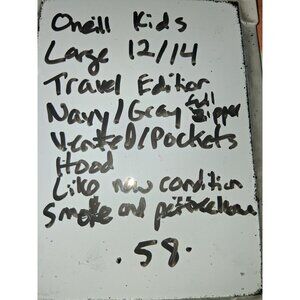 Oneill Kids
Large 12/14
Travel Edition
Navy/Gray full zipper
Vented/Pockets
Hood
Like new condition
Smoke and pet free home
.58.